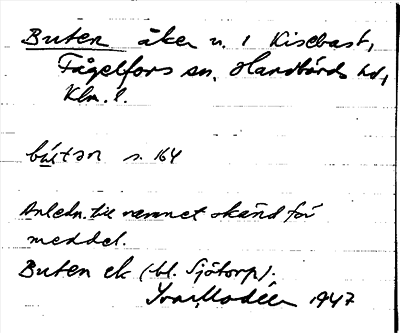 Buten åker n. i Kisebast,
Fågelfors sn, Handbörds hd,
Klm. l.
bùtən s. 164
Anledn. till namnet okänd för
meddel.
Buten ek (bl. Sjötorp).
Ivar Modéer 1947